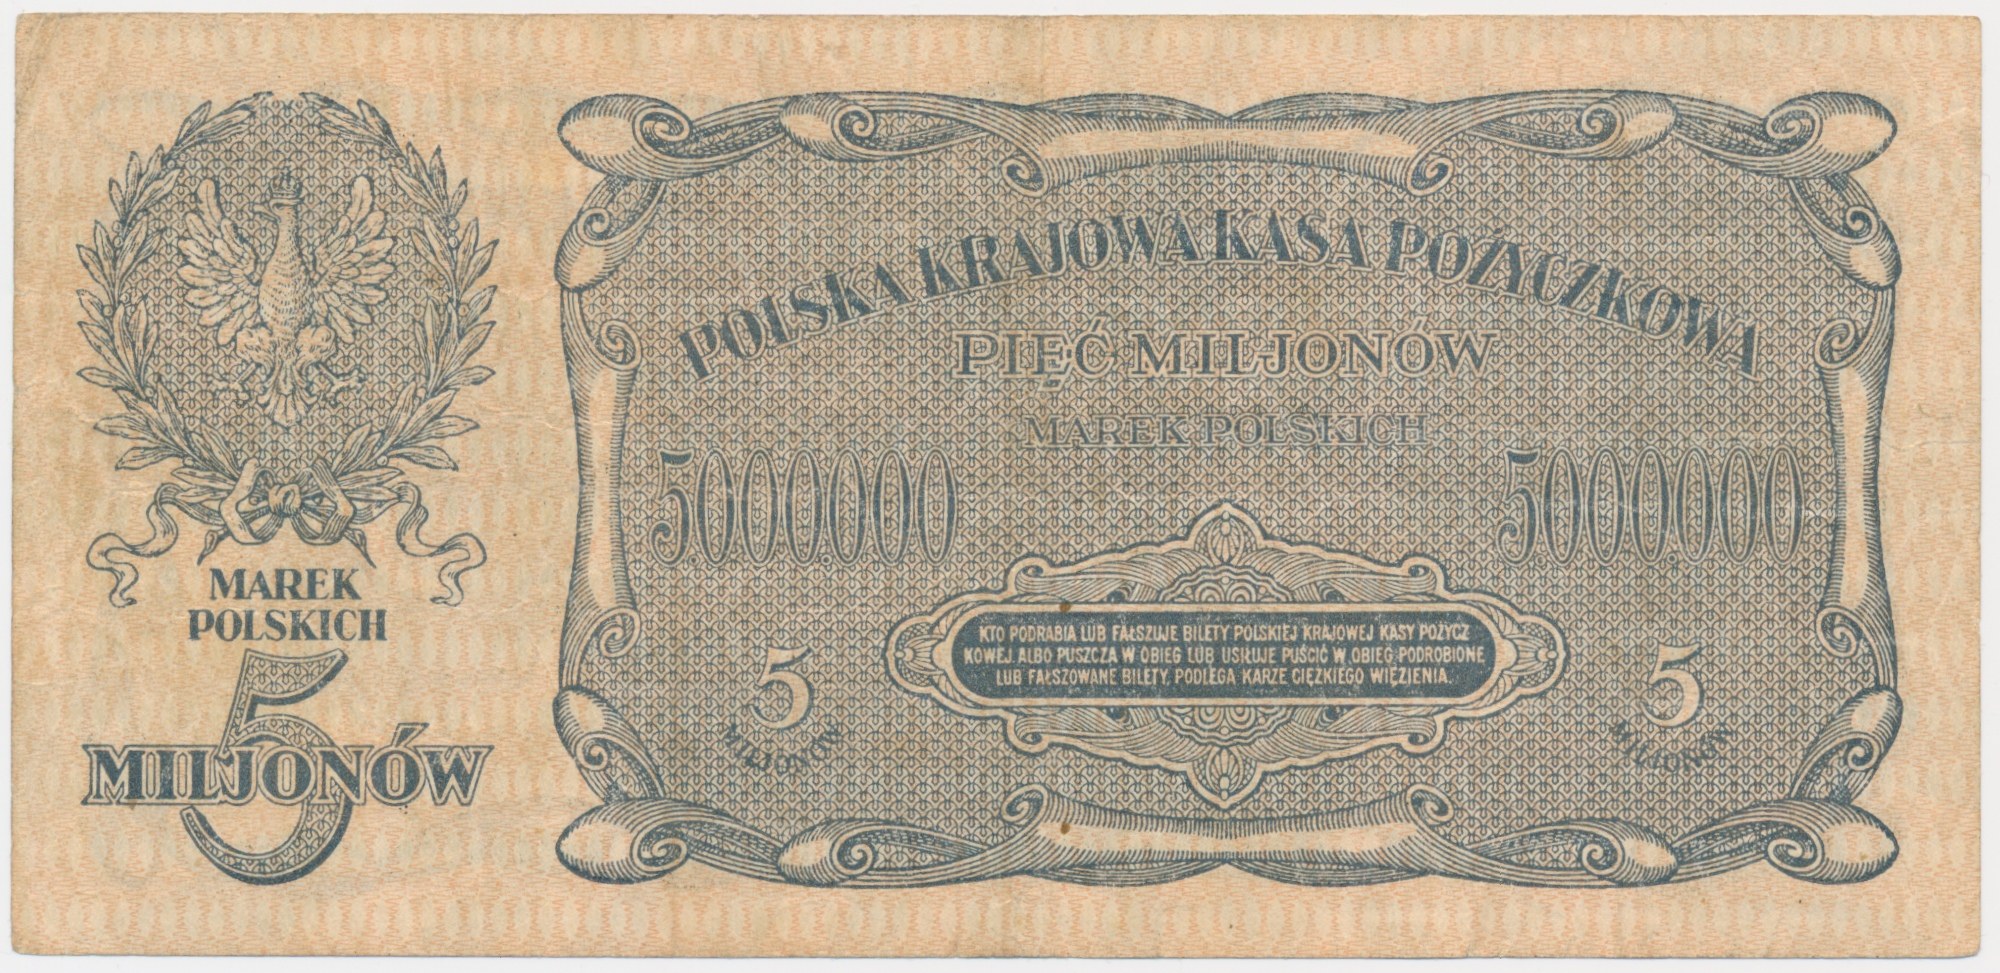 MAREK
POLSKICH
5
MILJONÓW
POLSKA KRAJOWA KASA POŻYCZKOWA
PIĘĆ MILJONÓW
MAREK POLSKICH
5.000.000
5.000.000
KTO PODRABIA LUB FAŁSZUJE BILETY POLSKIEJ KRAJOWEJ KASY POŻYCZ
KOWEJ ALBO PUSZCZA W OBIEG LUB USIŁUJE PUŚCIĆ W OBIEG PODROBIONE
LUB FAŁSZOWANE BILETY, PODLEGA KARZE CIĘŻKIEGO WIĘZIENIA.
5
MILJONÓW
5
MILJONÓW